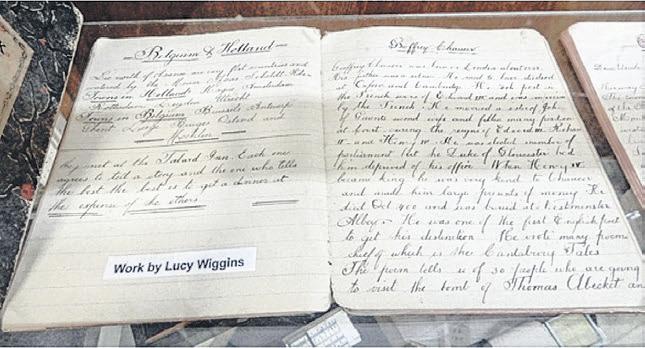 Belgium & Holland
Lie north of France are very flat countries and
watered by the Rivers Meuse Scheldt Rhine
Towns in Holland Hague Amsterdam
Rotterdam Leyden Utrecht
Towns in Belgium Brussels Antwerp
Ghent Liege Bruges Ostend and
Mechlin
They met at the Tabard Inn. Each one
agrees to tell a story and the one who tells
the best the best is to get a dinner at
the expense of the others
Work by Lucy Wiggins
Geoffrey Chaucer
Geoffrey Chaucer was born in London about
His father was a He said to have studied
at Oxford and Cambridge. He took part in
French wars of Edward III and was
by the French. He married sister of John
of Gaunts second wife and fills many position
at Court during the reigns of Edward III Richard
II and Henry IV. He was elected member of
parliament but the Duke of Gloucester had
him deprived of his office. When Henry IV
became king he was very kind to Chaucer
and made him large grants of money He
died Oct 400 and was buried at Westminster
Abbey. He was one of the first English poet
to get his distinction He wrote many poem
chief of which is the Canterbury Tales
The poem tells us of 30 people who are going
to visit the tomb of Thomas Abecket an
Dear Uncle